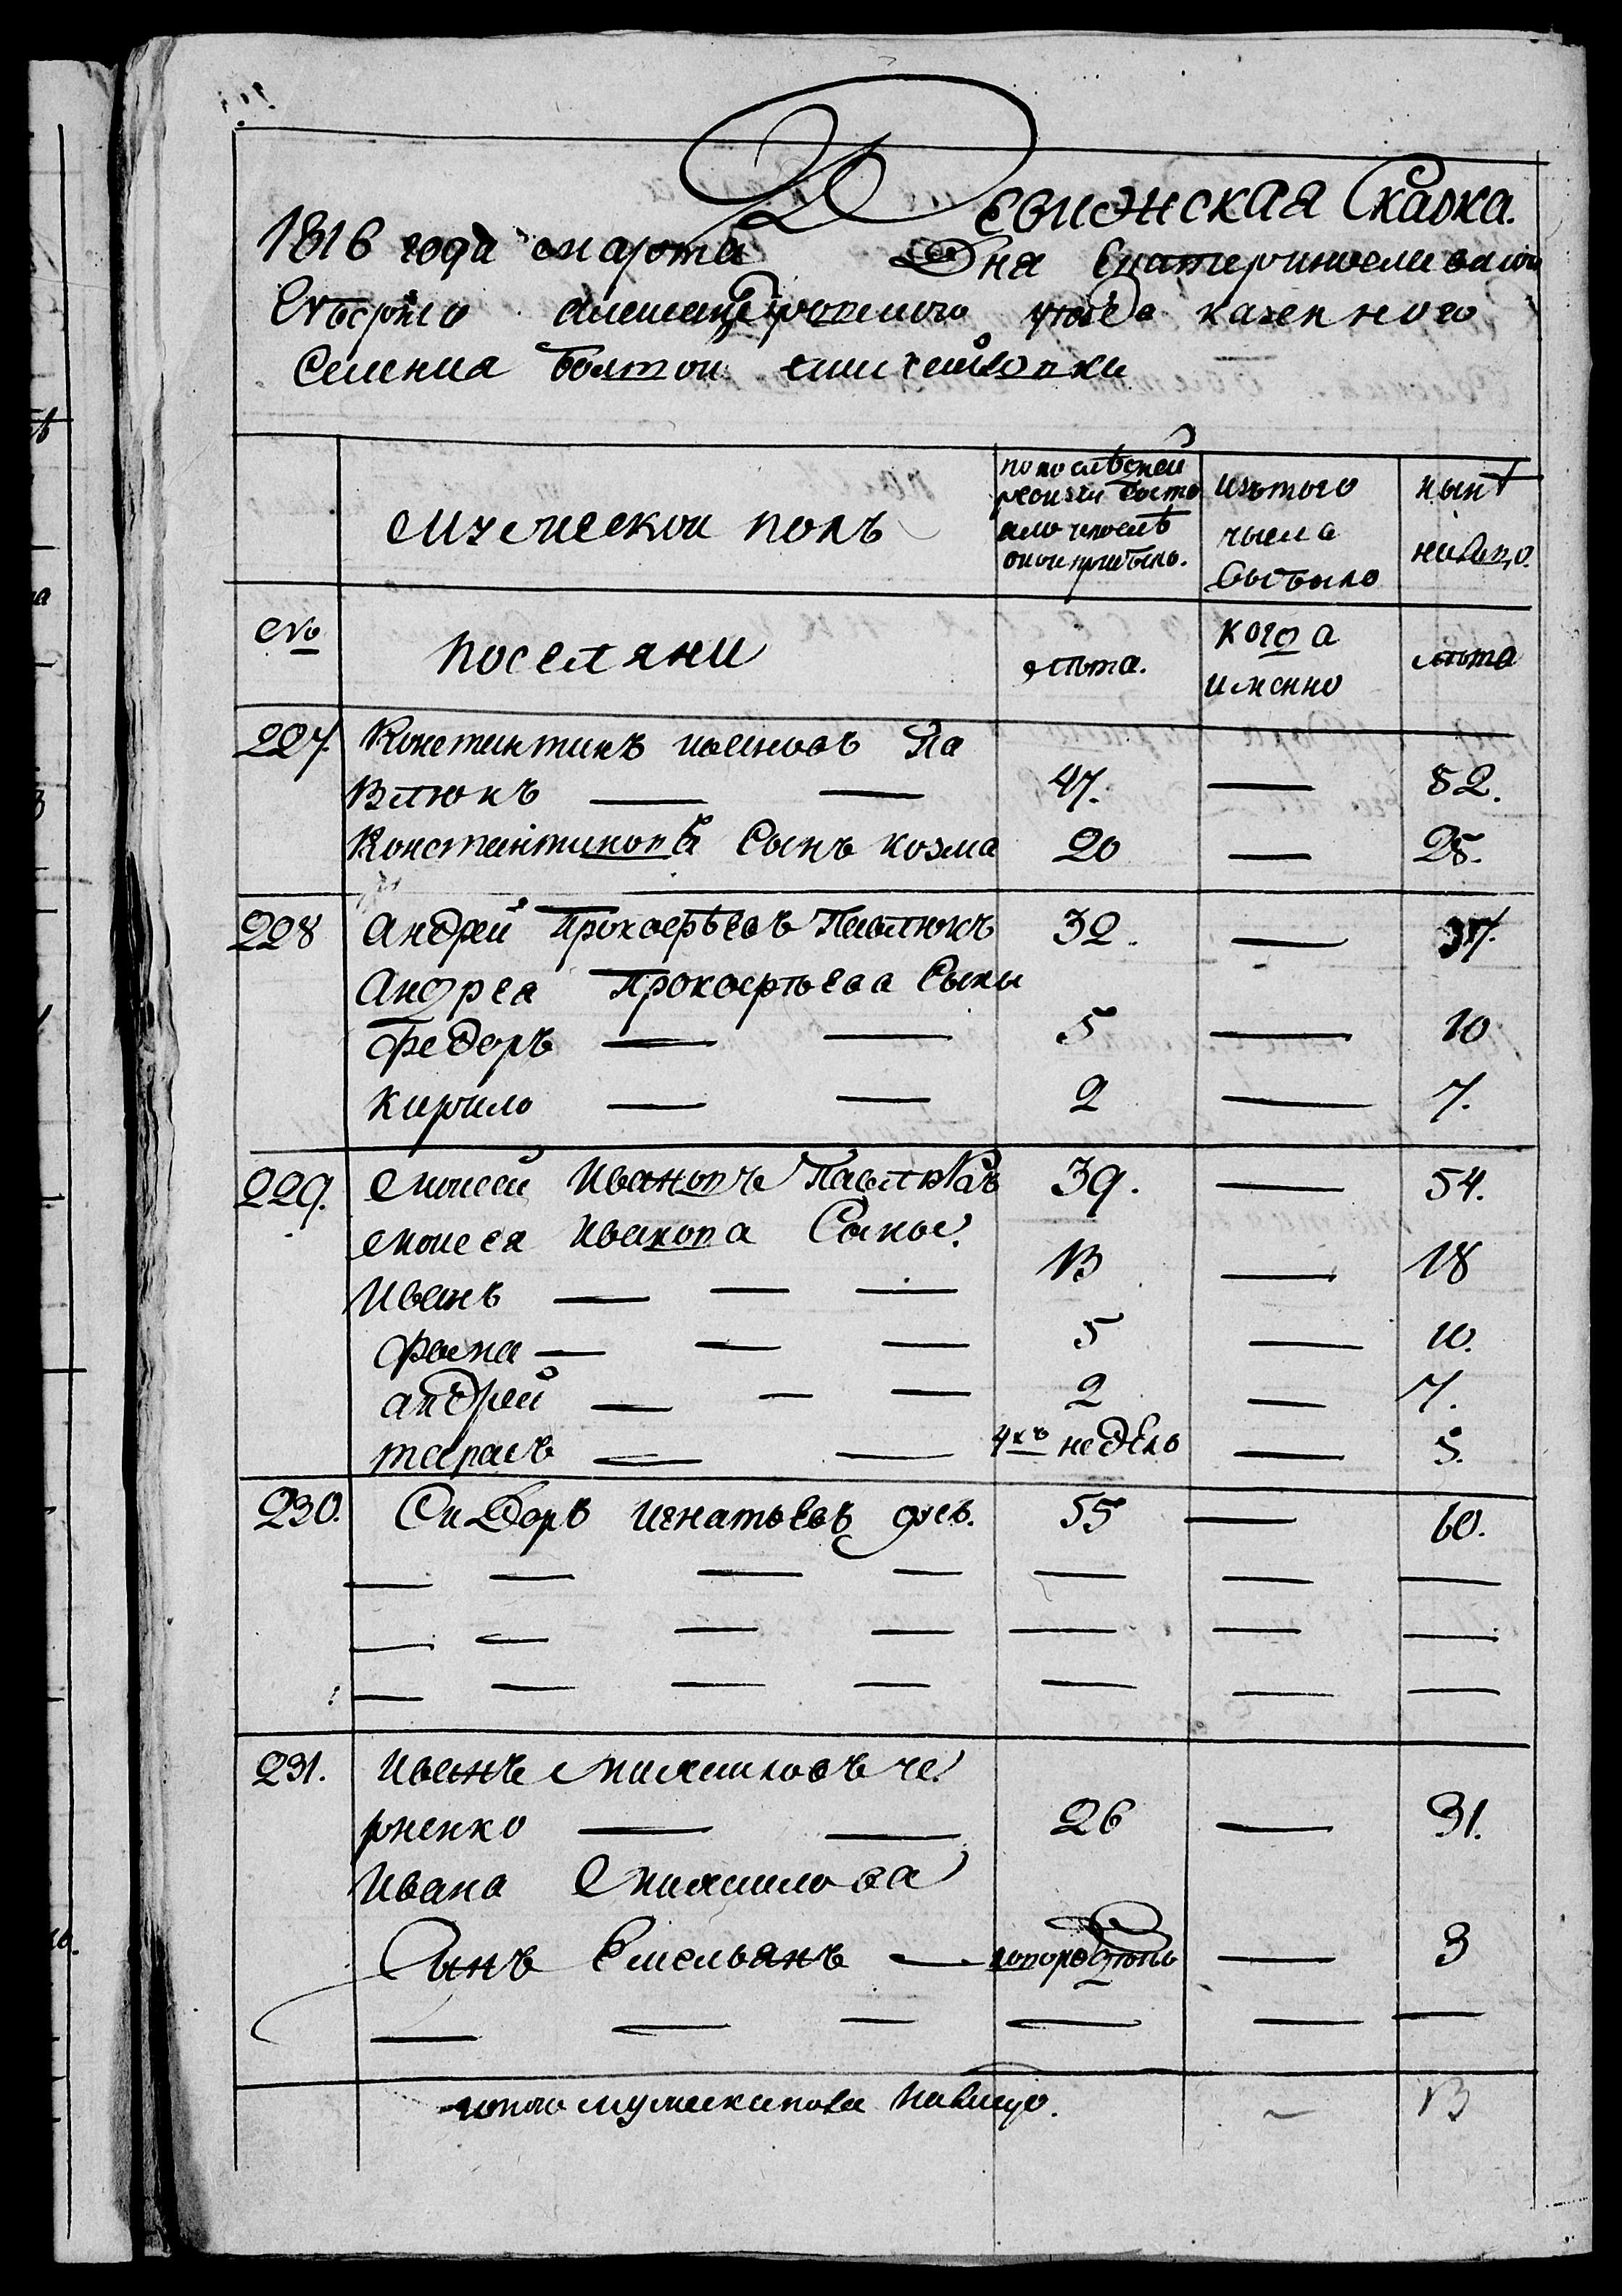 Ревижская Сказка.
1816 года марта Дня Екатеринославской
Губернїи Александровского уезда казенного
Селения Болшой Михайловки
Мужеской полъ
по последней ревизїи состояло и после оной прибыло.
изътого числа выбыло
ныне на лицо.
№
поселяни
лета.
когда именно
лета
227. Константинъ ивановъ Па
влюкъ — — 47. — 52.
Константинова Сынъ козма 20 — 25.
228 Андрей Прокофьевъ Павлюкъ 32. — 37.
Андрея Прокофьева Сыны
Федоръ — — 5 — 10
Кирило — — 2 — 7.
229. Моисей Ивановъ Павлюкъ 39. — 54.
Моисея Иванова Сыны.
Иванъ — — — 13 — 18
Фома — — — 5 — 10.
андрей — — — 2 — 7.
тарасъ — — 4хъ недель — 5.
230. Сидоръ Игнатьевъ 55 — 60.
— — — — — — —
— — — — — — —
— — — — — — —
231. Иванъ Михайловъ че
рненко — — 26 — 31.
Ивана Михайлова
Сынъ Емельянъ — новорожденъ — 3
— — — — — —
итого мужеска пола налицо. ~ 13